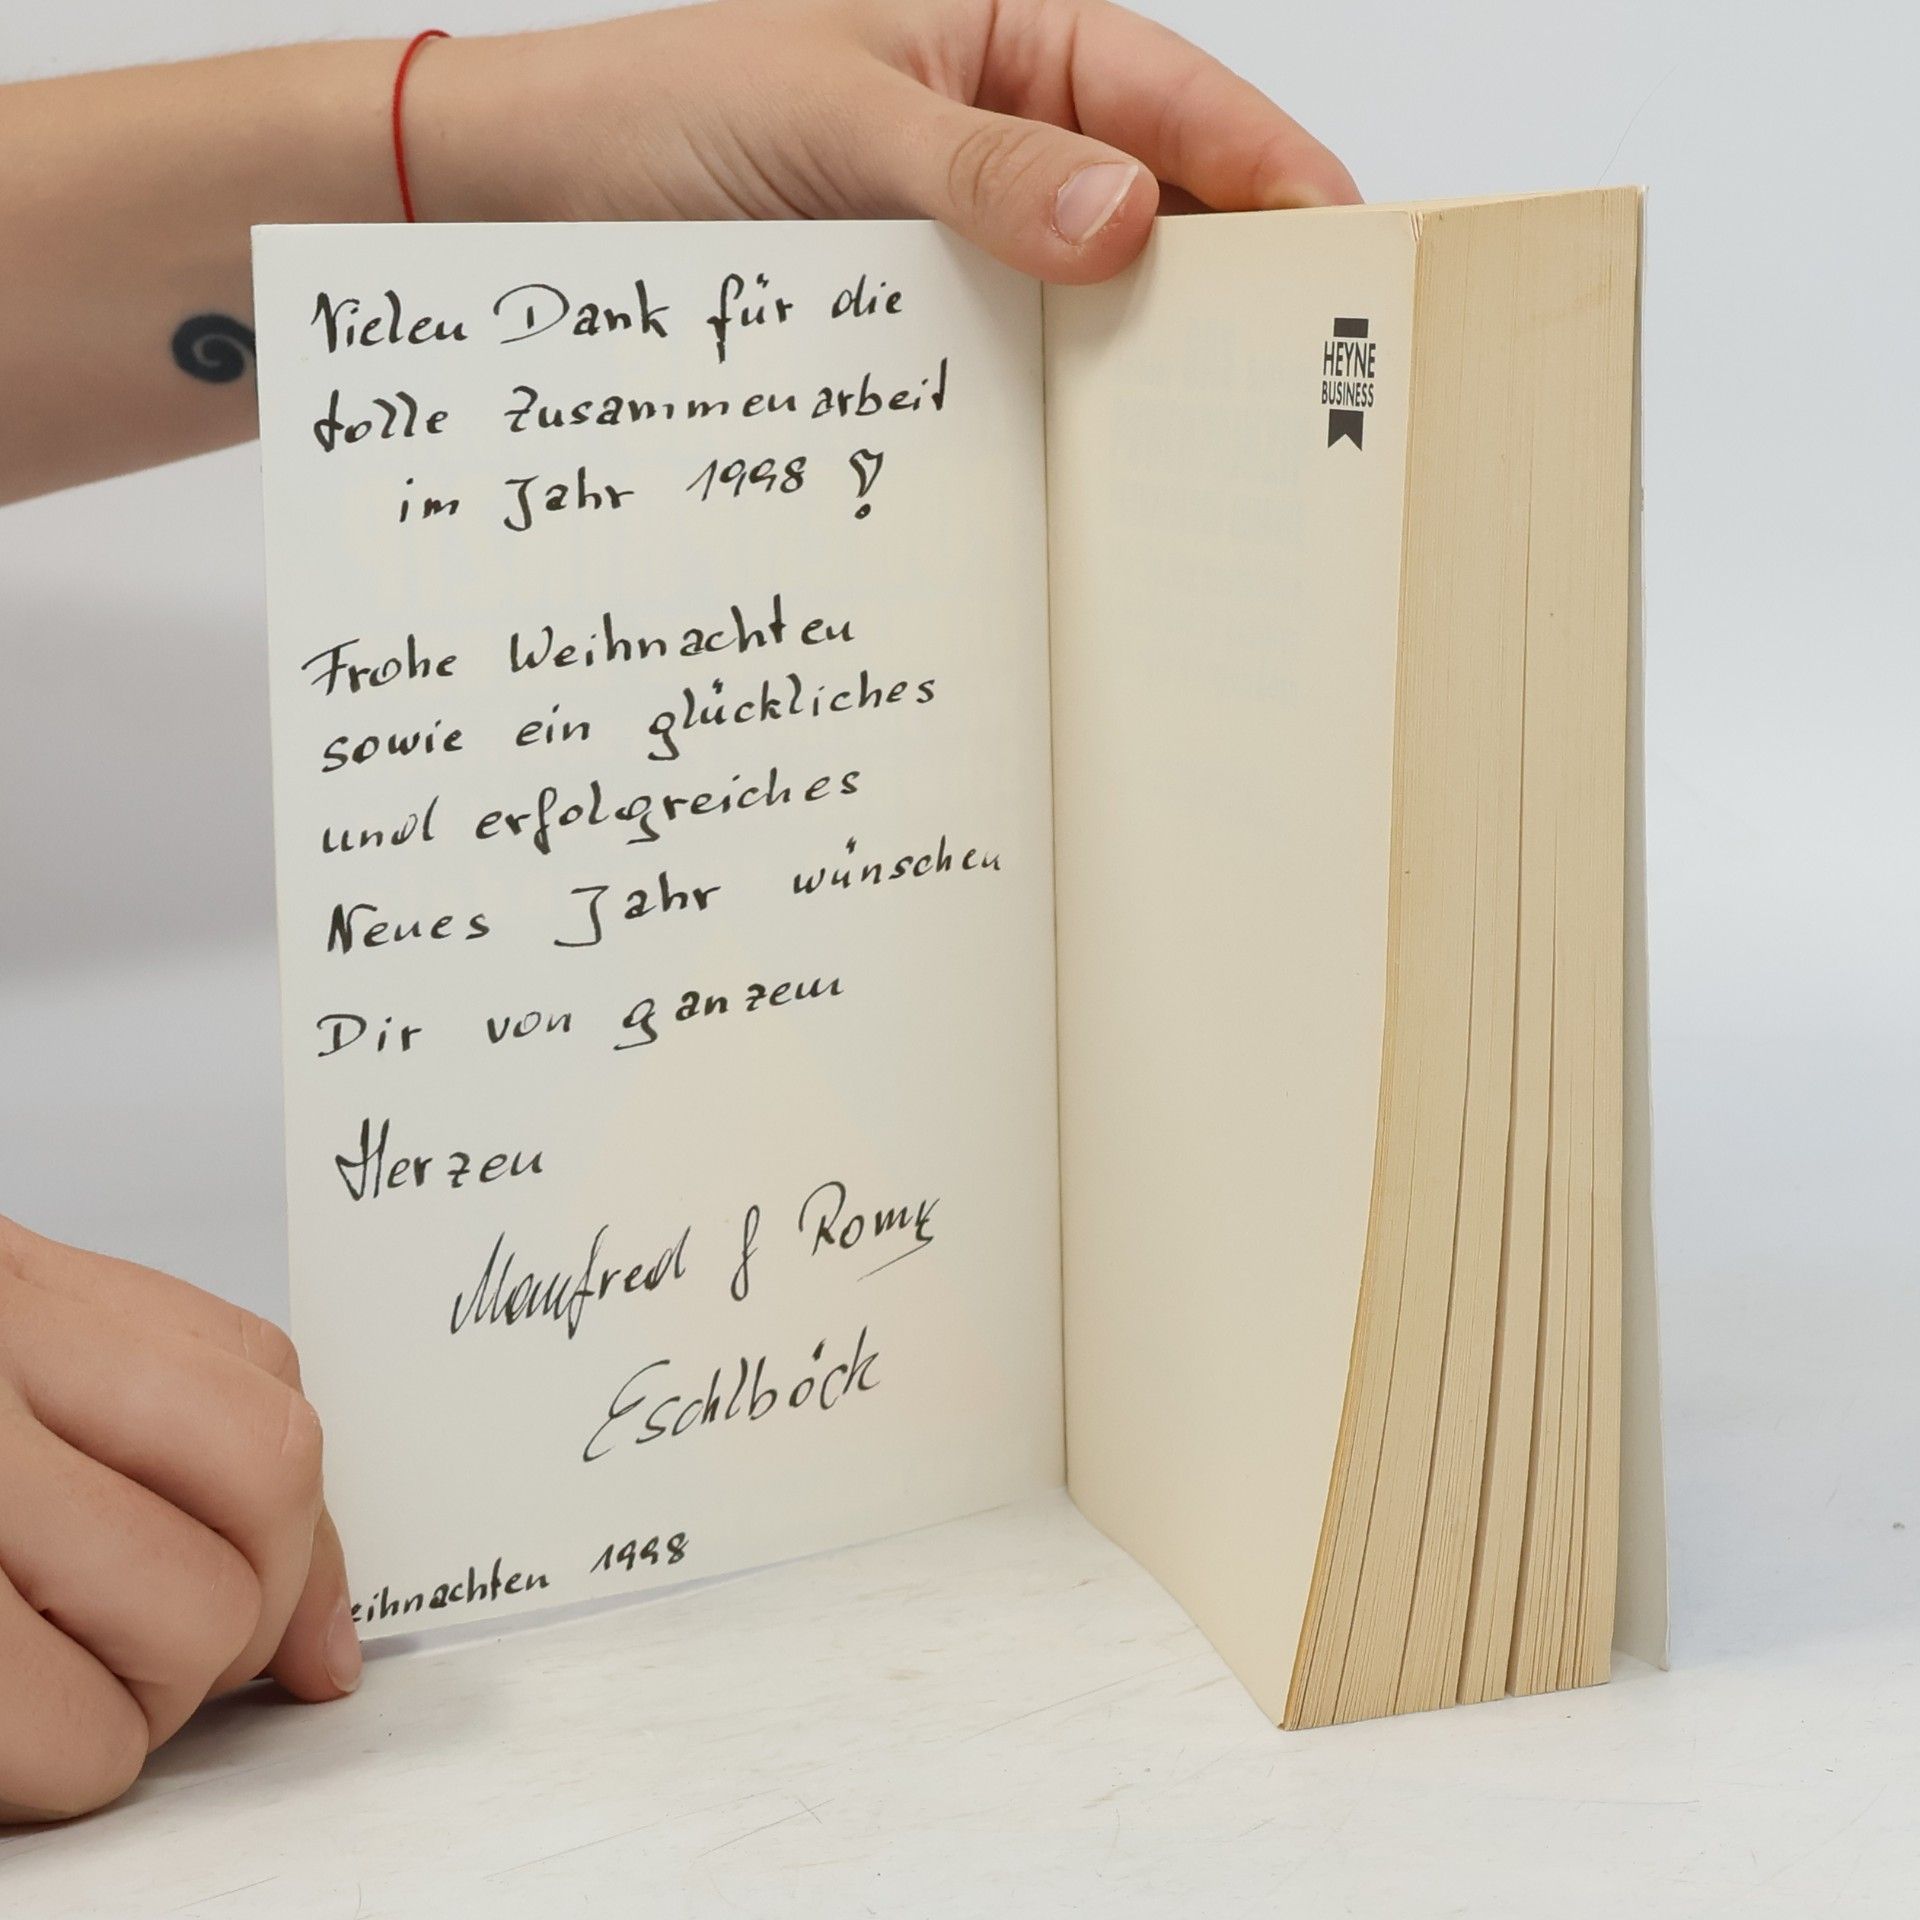 Vielen Dank für die
tolle Zusammenarbeit
im Jahr 1998 !
Frohe Weihnachten
sowie ein glückliches
und erfolgreiches
Neues Jahr wünschen
Dir von ganzem
Herzen
Manfred & Romy
Eschlböck
eihnachten 1998
HEYNE
BUSINESS